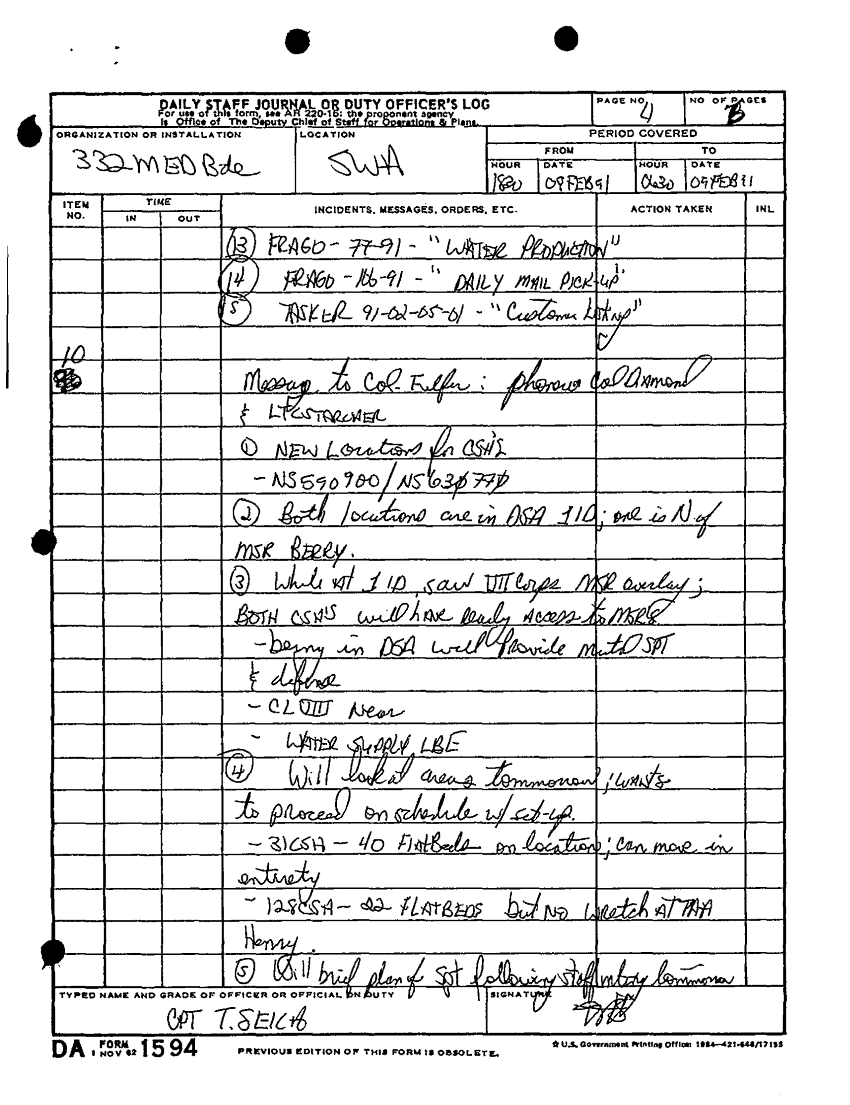 DAILY STAFF JOURNAL OR DUTY OFFICER'S LOG
For use of this form, see AR 220-15: the proponent agency
is Office of The Deputy Chief of Staff for Operations & Plans.
PAGE NO. 4
NO OF PAGES
ORGANIZATION OR INSTALLATION
332 MED Bde
LOCATION
SWA
PERIOD COVERED
FROM
TO
HOUR
DATE
HOUR
DATE
09 FEB 91
0630
09 FEB 91
ITEM NO.
TIME
IN
OUT
INCIDENTS, MESSAGES, ORDERS, ETC.
ACTION TAKEN
INL
(13) FRAGO - 77-91 - "WATER PRODUCTION"
(14) FRAGO - 106-91 - "DAILY MAIL PICK-UP"
TASKER 91-02-05-01 - "Customer Listings"
10
Message to Col. Fulfer: Col Diamond
& LTC STARCHER
(1) NEW Locations for CSH'S
- NS590900/NS630770
(2) Both locations are in DSA 1 ID; one is N of
MSR BERRY.
(3) While AT 1 ID, saw VII Corps MSR overlay;
BOTH CSH'S will HAVE ready ACCESS to MSR'S
- being in DSA will Provide mutul SPT
& defense
- CL VIII Near
- WATER SUPPLY LBE
(4) Will look at areas tommorrow; WANTS
to proceed on schedule w/ set-up.
- 31CSH - 40 FlatBeds on location; can move in
entirety
- 128CSH - 22 FLATBEDS but NO wretch AT TAA
Henry.
(5) Will brief plan of Spt following staff
TYPED NAME AND GRADE OF OFFICER OR OFFICIAL ON DUTY
CPT T.
SIGNATURE
DA FORM 1 NOV 62 1594
PREVIOUS EDITION OF THIS FORM IS OBSOLETE.
☆ U.S. Government Printing Office: 1984-421-646/17155